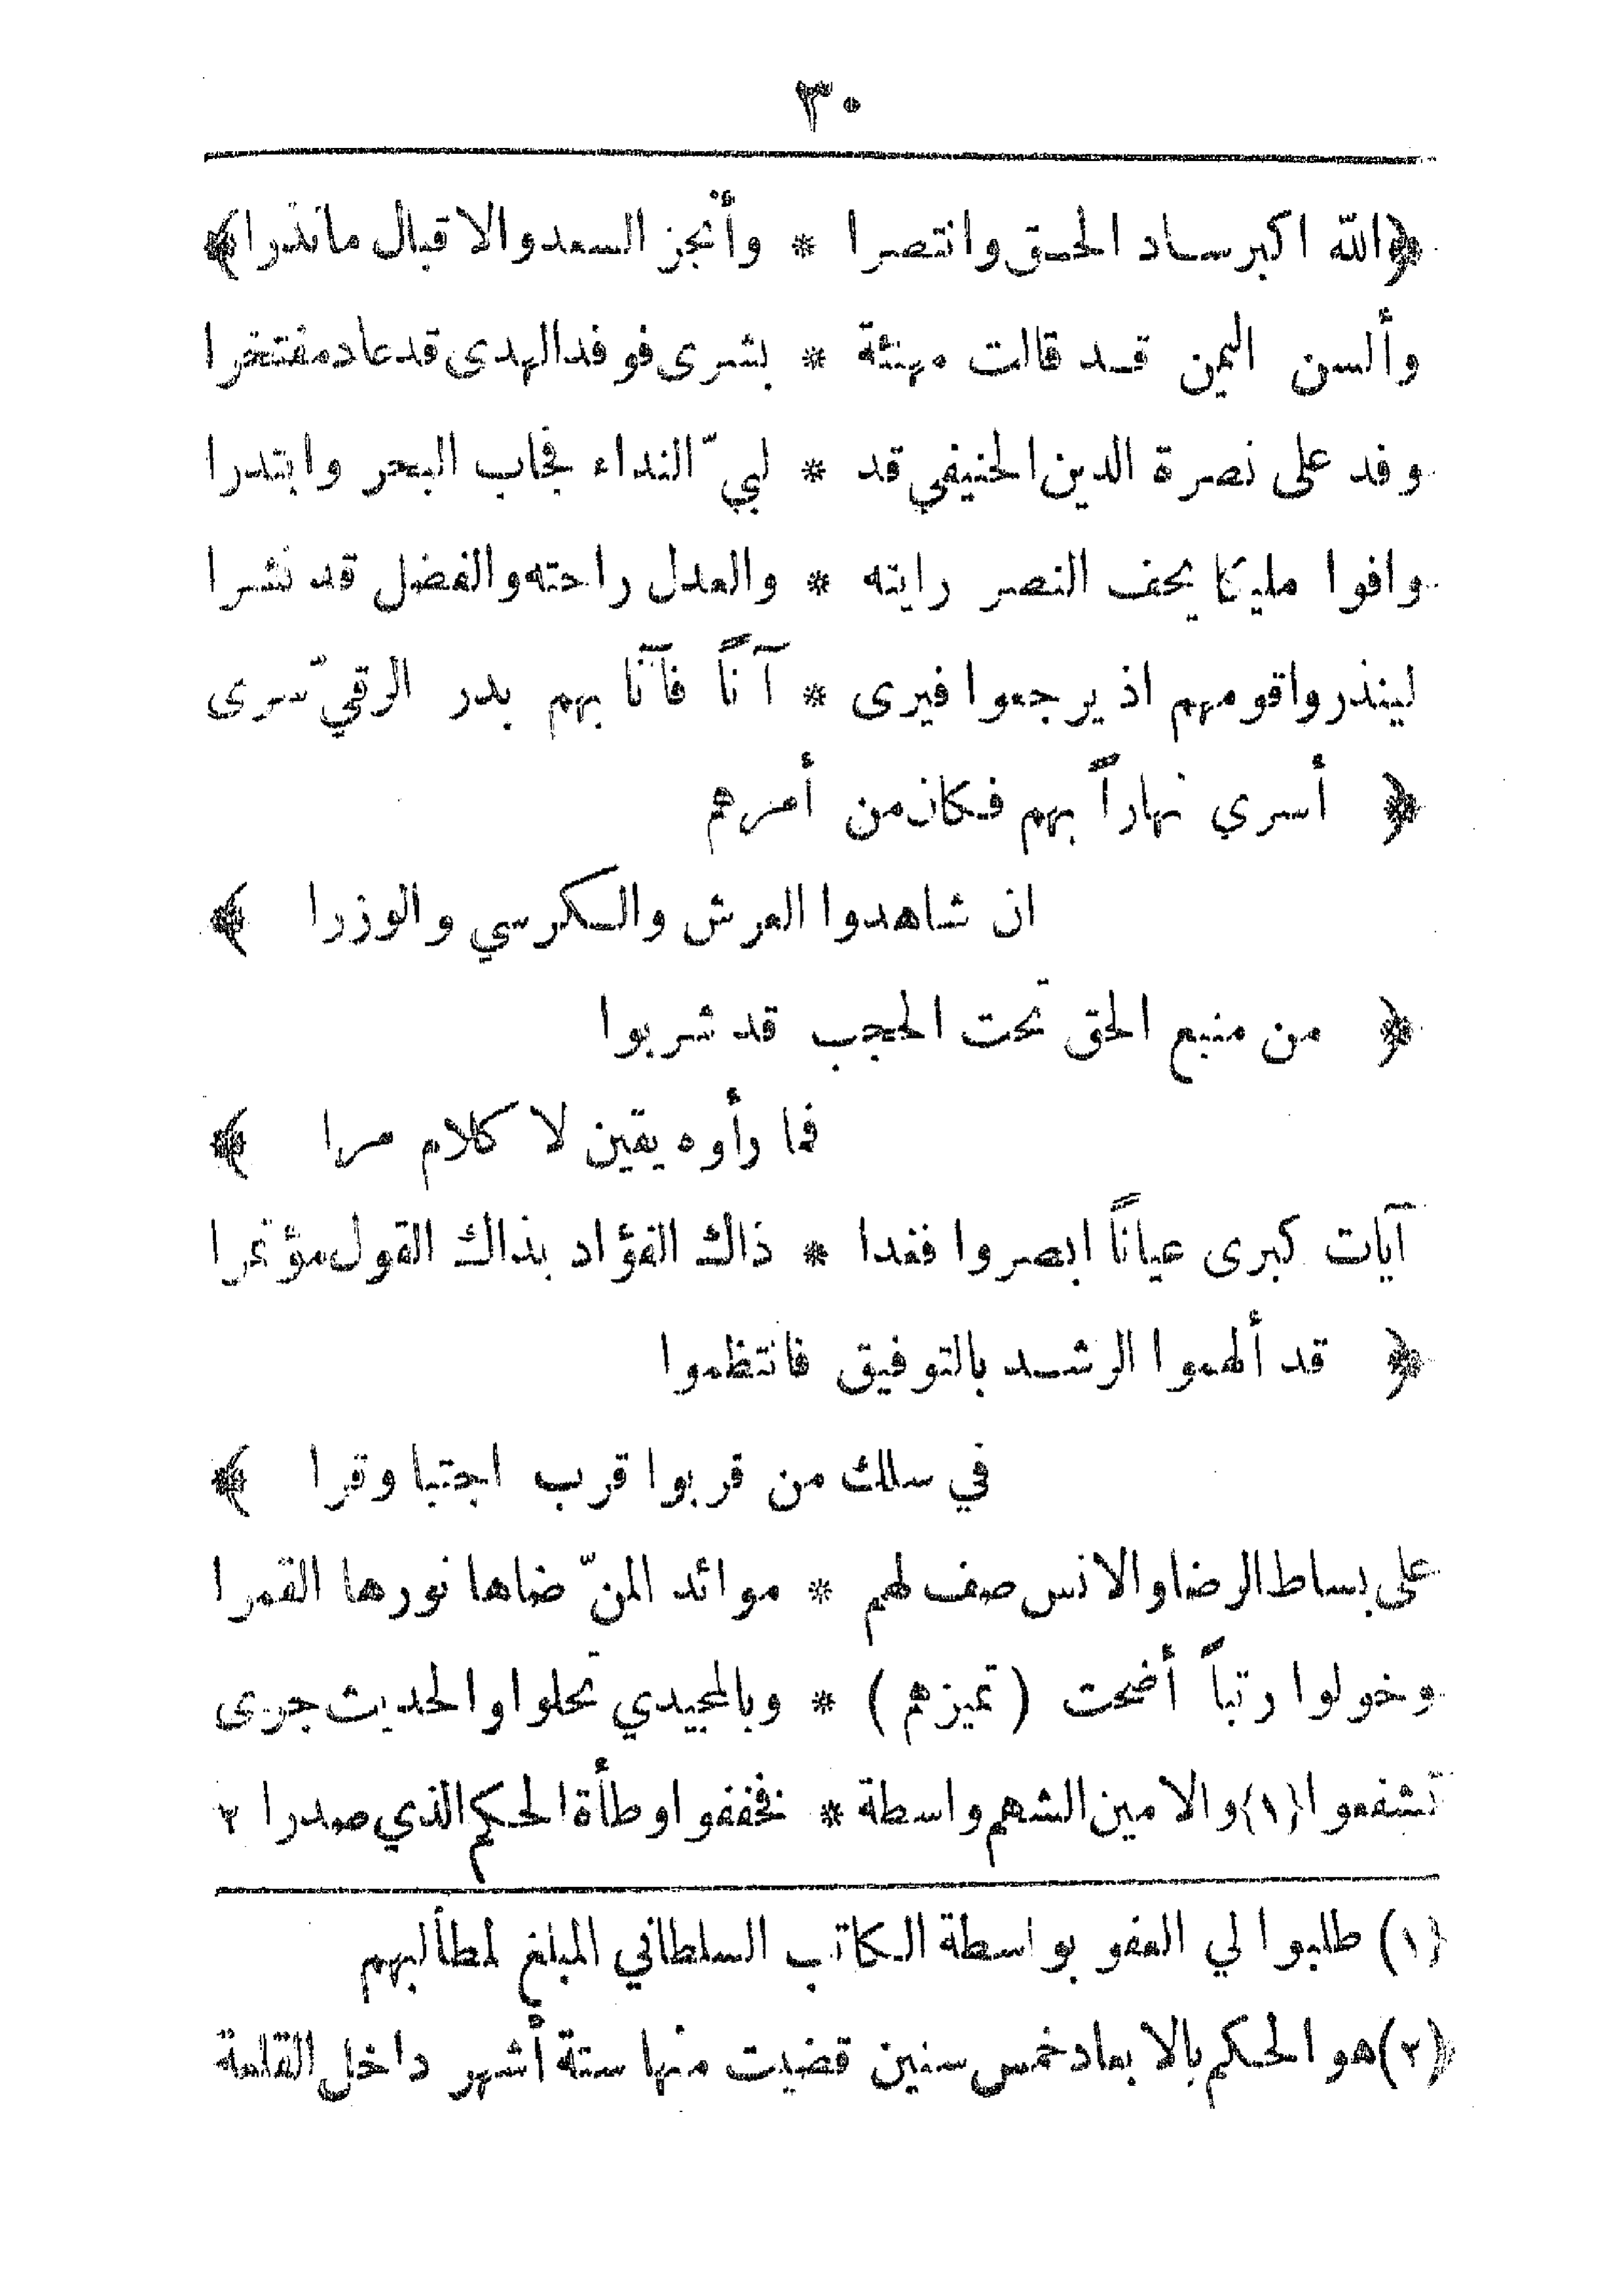 ٣٠
﴿الله اكبر ساد الحق وانتصرا * وأنجز السعد والاقبال مانذرا﴾
وألسن اليمن قد قالت مهنئة * بشرى فوفد الهدى قد عاد مفتخرا
وفد على نصرة الدين الحنيفي قد * لبيّ النداء فجاب البحر وابتدرا
وافوا مليكا يحف النصر رايته * والعدل راحته والفضل قد نشرا
لينذروا قومهم اذ يرجعوا فيرى * آناً فآنا بهم بدر الرقيّ سرى
﴿ أسري نهاراً بهم فكان من أمرهم
ان شاهدوا العرش والكرسي والوزرا ﴾
﴿ من منبع الحق تحت الحجب قد شربوا
فما رأوه يقين لا كلام مرا ﴾
آيات كبرى عياناً ابصروا فغدا * ذاك الفؤاد بذاك القول مؤتمرا
﴿ قد ألهموا الرشد بالتوفيق فانتظموا
في سلك من قربوا قرب اجتبا وقرا ﴾
على بساط الرضا والانس صف لهم * موائد المنّ ضاها نورها القمرا
وخولوا رتباً أضحت (تميزهم) * وبالمجيدي تحلوا والحديث جرى
تشفعوا (١) والامين الشهم واسطة * فخففوا وطأة الحكم الذي صدرا ٢
(١) طلبوا لي العفو بواسطة الكاتب السلطاني المبلغ لمطالبهم
(٢) هو الحكم بالابعاد خمس سنين قضيت منها ستة أشهر داخل القلعة